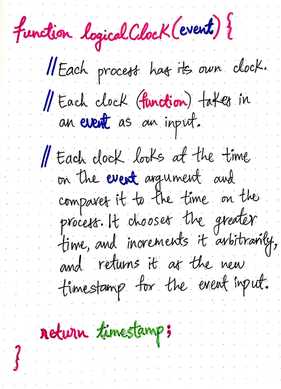 function logicalClock(event) {
// Each process has its own clock.
// Each clock (function) takes in
an event as an input.
// Each clock looks at the time
on the event argument and
compares it to the time on the
process. It chooses the greater
time, and increments it arbitrarily,
and returns it as the new
timestamp for the event input.
return timestamp;
}